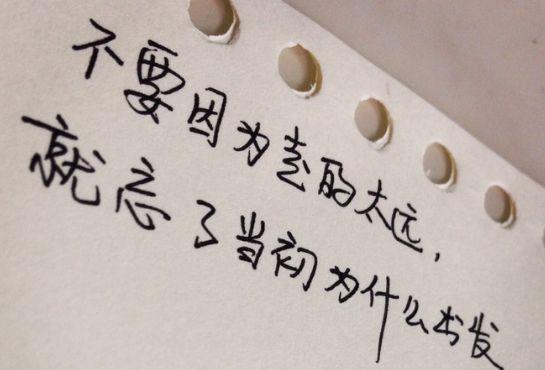 不要因为走的太远,
就忘了当初为什么出发